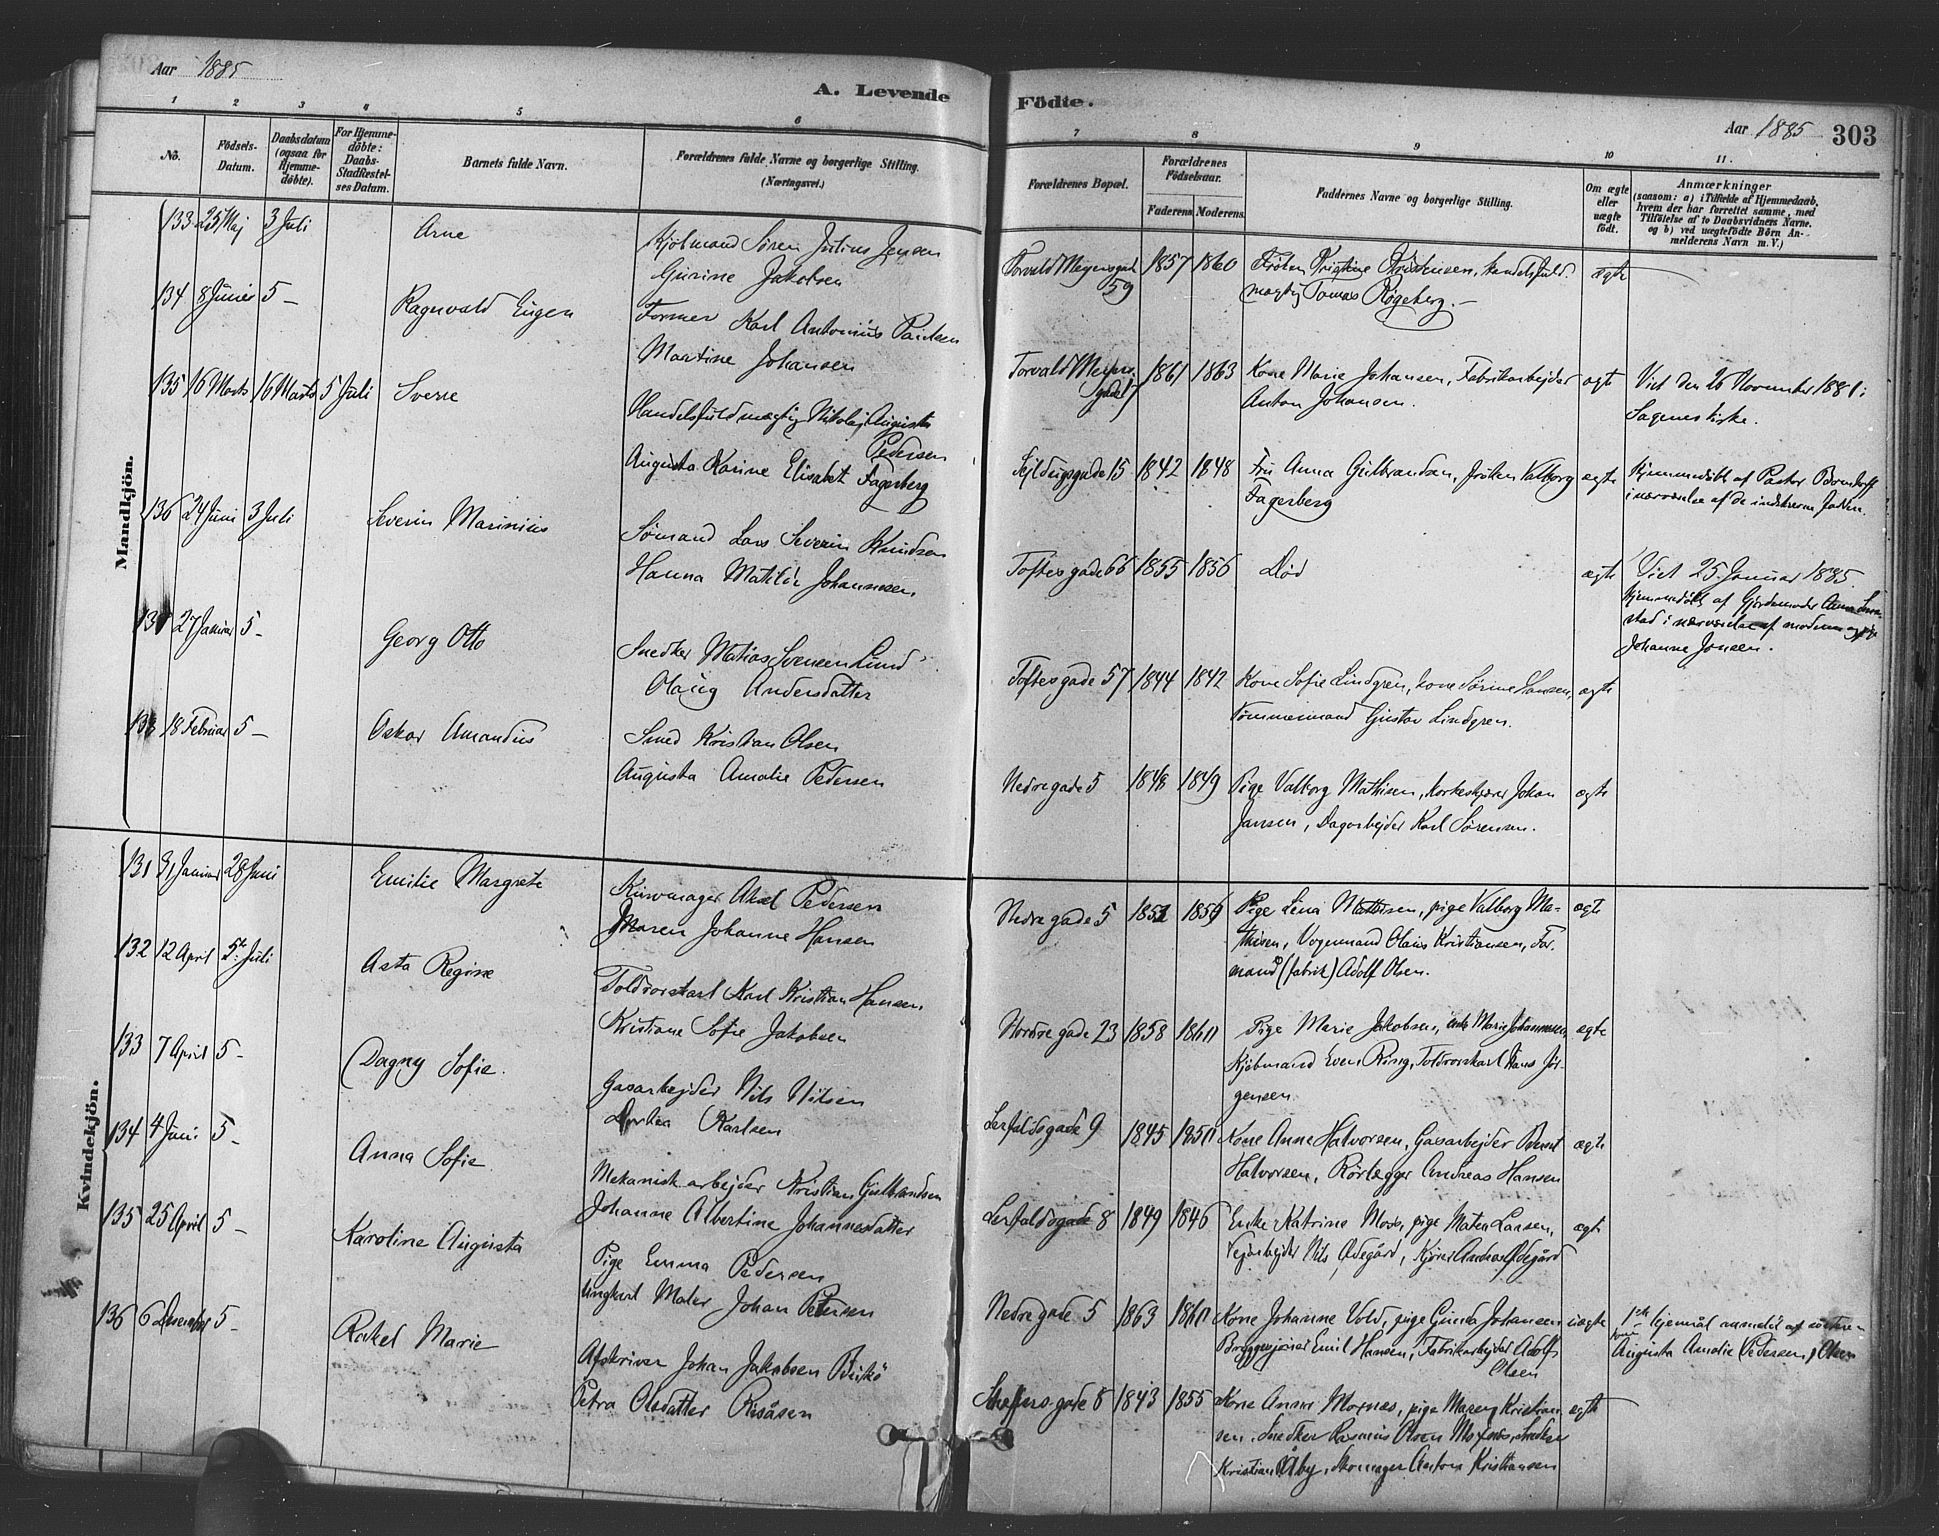 Aar 1885
A. Levende
Födte.
Aar 1885 303
1 2 3 4 5 6 7 8 9 10 11.
No.
Födsels-
Datum.
Daabsdatum
(ogsaa for
Hjemme-
döbte).
For Hjemme-
döbte:
Daabs-
Stadfæstel-
ses Datum.
Barnets fulde Navn.
Forældrenes fulde Navne og borgerlige Stilling.
(Næringsvei.)
Forældrenes Bopæl.
Forældrenes
Födselsaar.
Faderens Moderens
Faddernes Navne og borgerlige Stilling.
Om ægte
eller
uægte
födt.
Anmærkninger
(saasom: a) i Tilfælde af Hjemmedaab,
hvem der har forrettet samme, med
Tilföielse af to Daabsvidners Navne.
og b) ved uægtefödte Börn An-
melderens Navn m. V.)
Mandkjön.
133 25 Maj 3 Juli Arne
Kjøbmand Søren Julius Jensen
Gurine Jakobsen
Torvald Meyersgad 59 1857 1860
Frøken Kristensen, handelsfuld-
mægtig Tomas Røgeberg.
ægte
134 8 Junier 5 – Ragnvald Eugen
Former Karl Antonius Paulsen
Martine Johansen
Torvald Meyers-
gade 1 1861 1863
Kone Marie Johansen, Fabrikarbejder
Anton Johansen.
ægte
Viet den 26 November 1881 i
Sagenes kirke.
135 16 Marts 16 Marts 5 Juli Sverre
Handelsfuldmægtig Nikolaj Augustus
Pedersen
Augusta Karine Elisabet Fagerberg
Sejldugsgade 15 1842 1848
Fru Anna Gulbrandsen, frøken Valborg
Fagerberg
ægte
Hjemmedøbt af Pastor
i nærværelse af de indskrevne faddere.
136 24 Juni 3 Juli Severin Marinius
Sømand Lars Severin Knudsen
Hanna Matilde Johannesen
Toftesgade 66 1855 1856
Død
ægte
Viet 25. Januar 1885.
Hjemmedøbt af Gjordemoder Anna
stad i nærværelse af moderen og
Johanne Jensen.
137 27 Januar 5 – Georg Otto
Snedker Matias Svensen Lund
Olaug Andersdatter
Toftesgade 57 1844 1842
Kone Sofie Lindgren, kone Sørine Hansen,
Tømmermand Gustav Lindgren.
ægte
138 18 Februar 5 – Oskar Amandus
Smed Kristian Olsen
Augusta Amalie Pedersen
Nedregade 5 1848 1849
Pige Valborg Mathisen, korkeskjærer Johan
Jansen, Dagarbejder Karl Sørensen.
ægte
Kvindekjön.
131 31 Januar 28 Juni Emilie Margrete
Kurvmager Aksel Pedersen
Maren Johanne Hansen
Nedregade 5 1852 1856
Pige Lina Mathisen, pige Valborg Ma-
thisen, Vognmand Olaus Kristiansen, For-
mand (fabrik) Adolf Olsen.
ægte
132 12 April 5te Juli Asta Regine
Toldvorskarl Karl Kristian Hansen,
Kristiane Sofie Jakobsen
Nordre gade 23 1858 1860
Pige Marie Jakobsen, enke Marie Johannesen,
Kjøbmand Even Ring, Toldvorskarl Hans Jør-
gensen
ægte
133 7 April 5 – Dagny Sofie.
Gasarbejder Nils Nilsen
Dortea Karlsen
Lerfaldsgade 9 1845 1850
Kone Anne Halvorsen, Gasarbejder Bernt
Halvorsen, Rørlægger Andreas Hansen
ægte
134 4 Juni 5 – Anna Sofie
Mekanisk arbejder Kristian Gulbrandsen
Johanne Albertine Johannesdatter
Lerfaldsgade 8 1849 1846
Enke Katrine Moss, pige Maten Larsen,
Vejarbejder Nils Ødegård, Kjører Andreas Ødegård
ægte
135 25 April 5 – Karoline Augusta
Pige Emma Pedersen
Ungkarl Maler Johan Petersen
Nedregade 5 1863 1860
Kone Johanne Vold, pige Gunda Johansen
Bryggesjouer Emil Hansen, Fabrikarbejder Adolf
Olsen
uægte
1ste lejemål anmeldt af søsteren
kone Augusta Amalie (Pedersen) Olsen
136 6 December 5 – Rakel Marie
Afskriver Johan Jakobsen Buskø
Petra Olsdatter Risåsen
Steffensgade 8 1843 1855
Kone Anne Moxnæs, pige Maren Kristian-
sen, Snedker Rasmus Olsen Moxnæs, Snedker
Kristian Alby, Skomager Anton Kristiansen
ægte